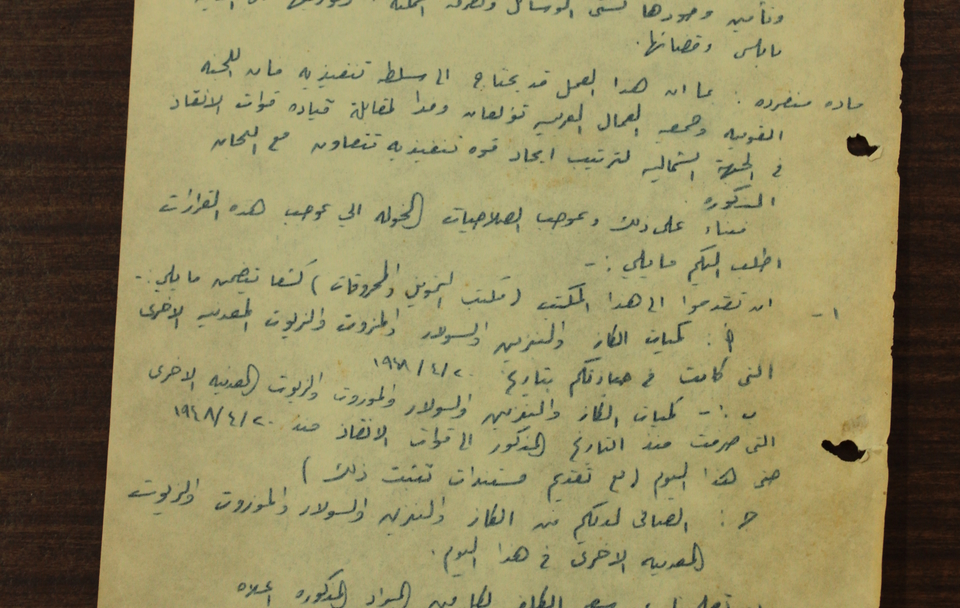 وتأمين وصولها لشتى الوسائل
نابلس وقضائها.
ماده منفرده : بما ان هذا العمل قد يحتاج الى سلطه تنفيذيه فان اللجنه
القوميه وجمعيه العمال العربيه تؤلفان وفدا لمقابلة قياده قوات الانقاذ
في الجبهة الشماليه لترتيب ايجاد قوه تنفيذيه تتعاون مع اللجان
المذكوره
فبناء على ذلك وبموجب الصلاحيات المخوله الي بموجب هذه القرارات
اطلب اليكم ما يلي :-
١- ان تقدموا الى هذا المكتب (مكتب التموين والمحروقات) كشفا يتضمن ما يلي :-
أ : كميات الكاز والبنزين والسولار والمزوت والزيوت المعدنيه الاخرى
التي كانت في حيازتكم بتاريخ ٢٠/٤/١٩٤٨
ب :- كميات الكاز والبنزين والسولار والموزوت والزيوت المعدنيه الاخرى
التي صرفت منذ التاريخ المذكور الى قوات الانقاذ منذ ٢٠/٤/١٩٤٨
حتى هذا اليوم (مع تقديم مستندات تثبت ذلك)
ج : الصافي لديكم من الكاز والبنزين والسولار والموزوت والزيوت
المعدنيه الاخرى في هذا اليوم.
سعر الكلفه لكل من المواد المذكوره اعلاه